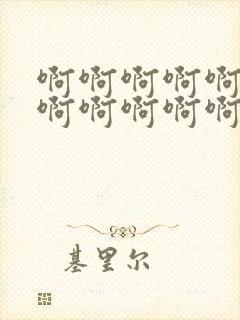 啊啊啊啊啊
啊啊啊啊啊
基里尔